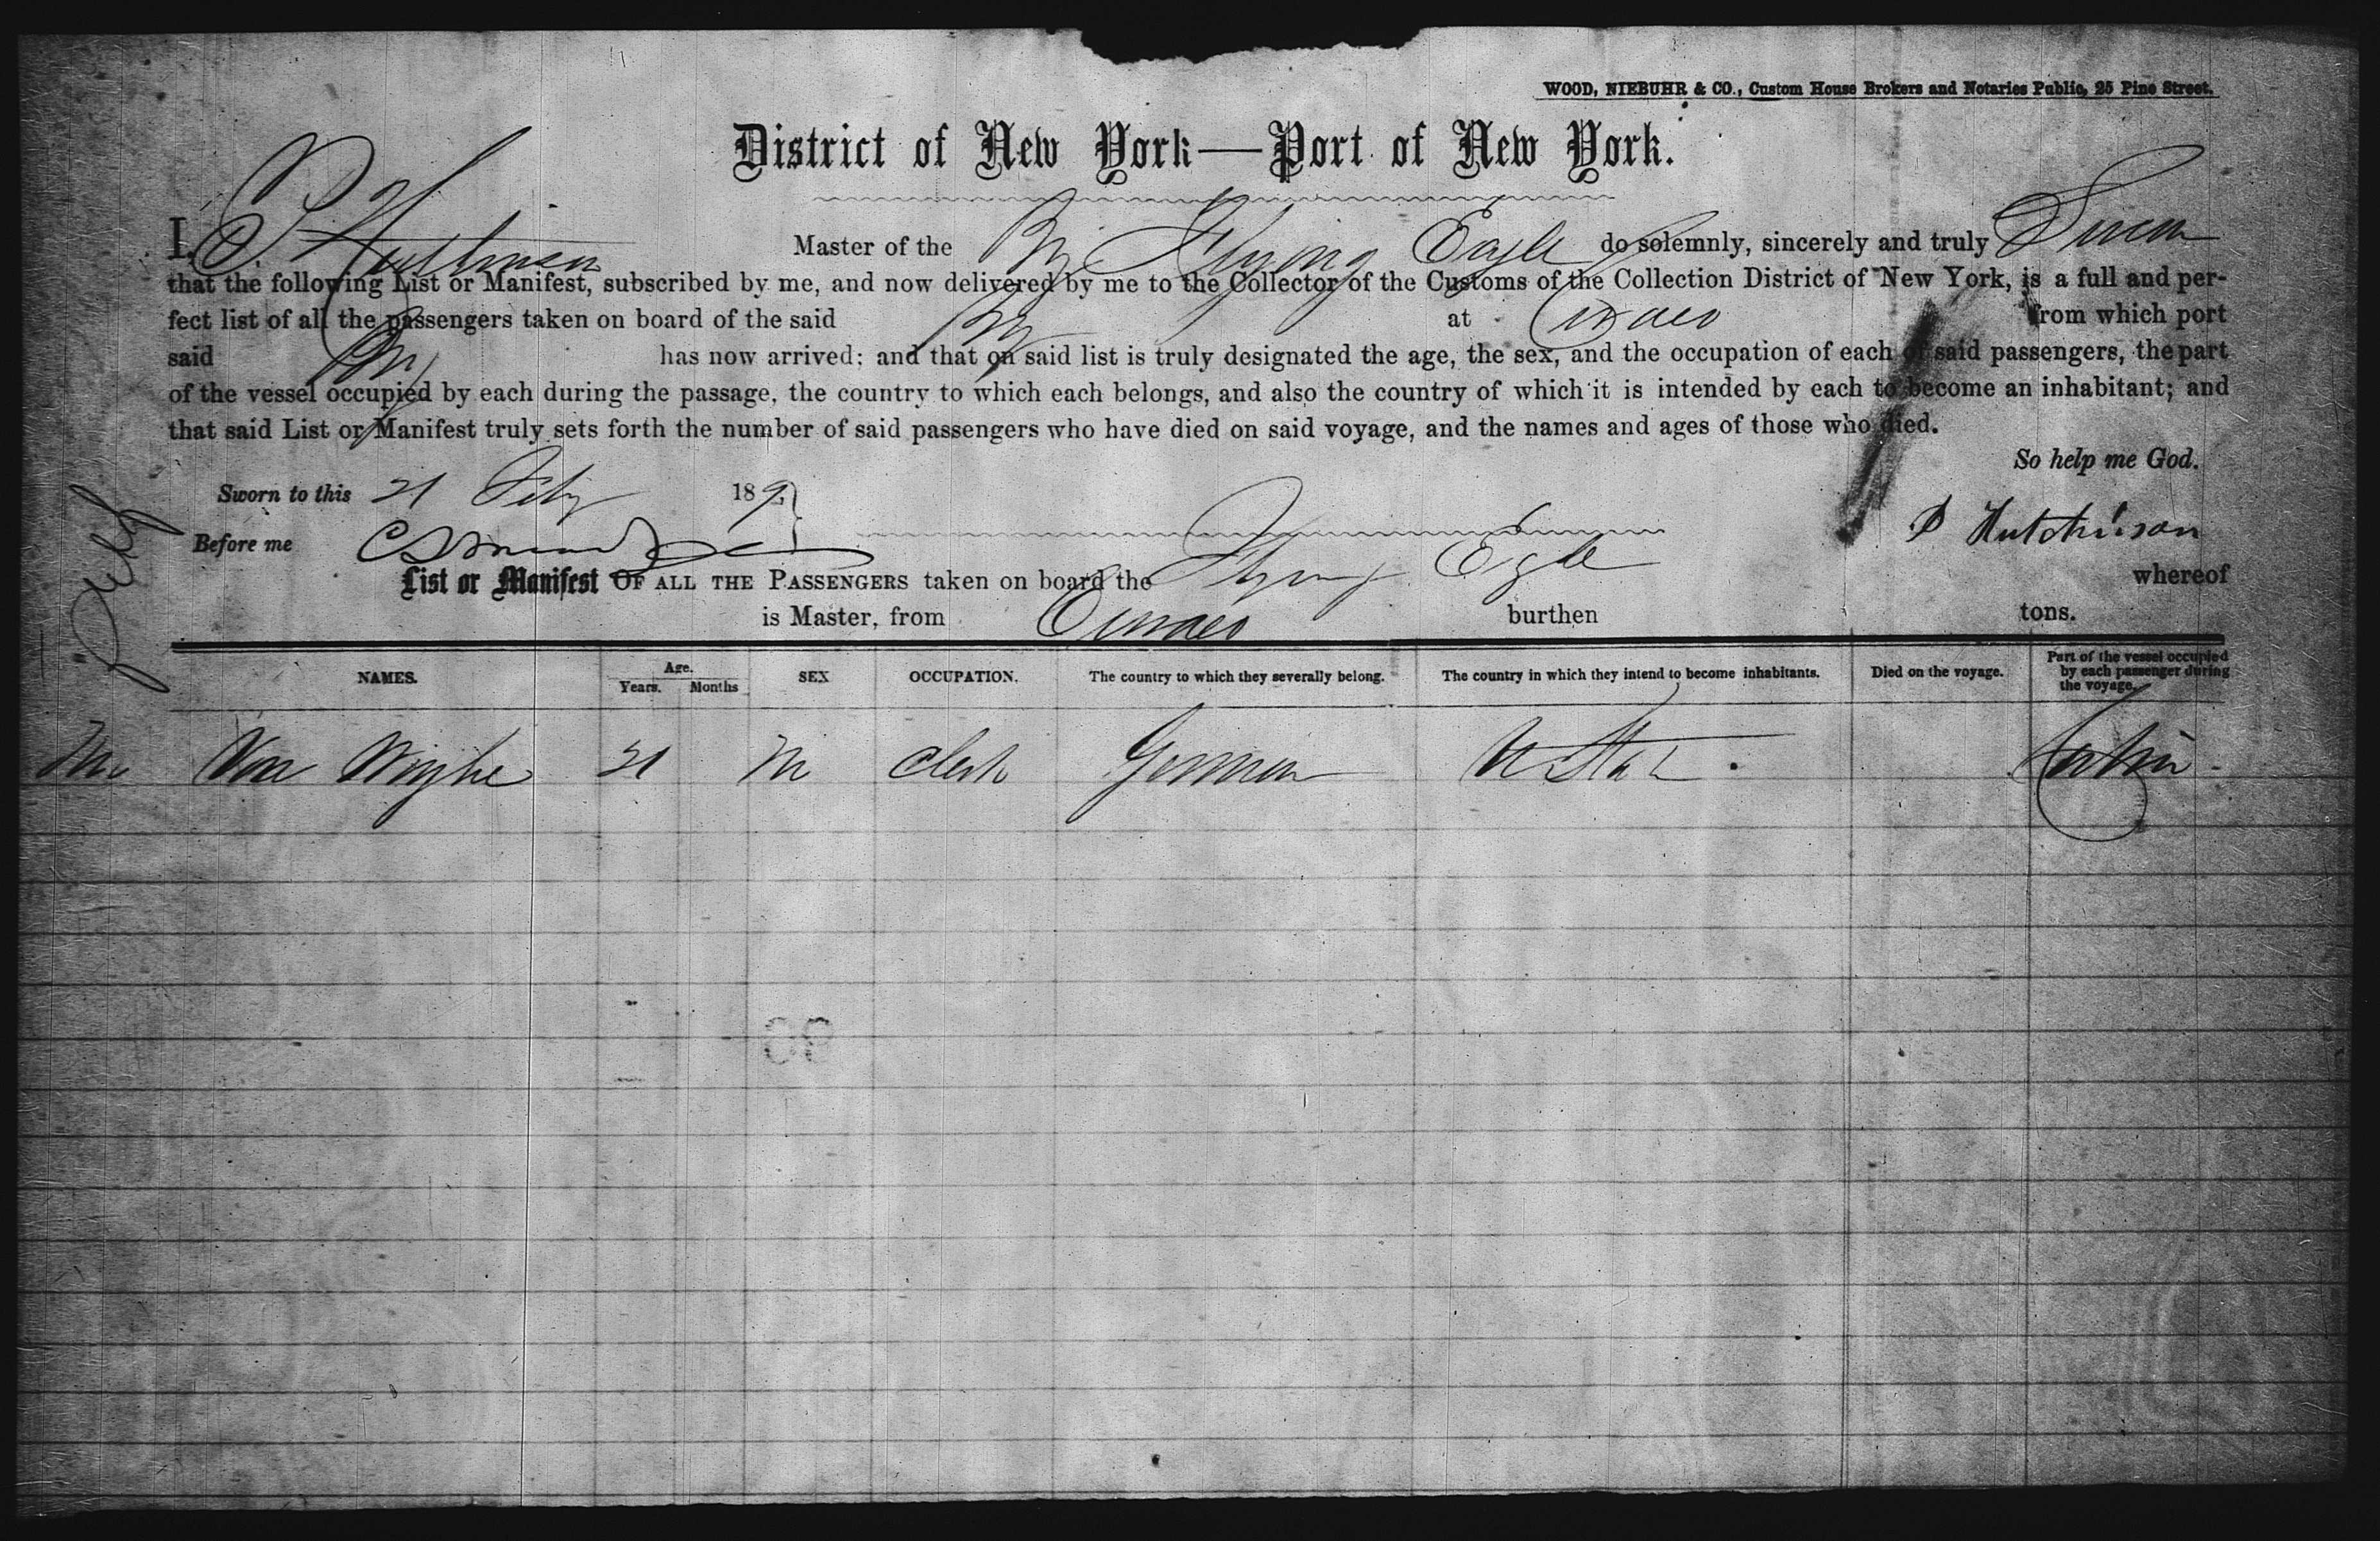 WOOD, NIEBUHR & CO., Custom House Brokers and Notaries Public, 25 Pine Street.
District of New York—Port of New York.
I, P. Hutchinson Master of the Brig Flying Eagle do solemnly, sincerely and truly Swear
that the following List or Manifest, subscribed by me, and now delivered by me to the Collector of the Customs of the Collection District of New York, is a full and per-
fect list of all the passengers taken on board of the said Brig at Curacao from which port
said Brig has now arrived; and that on said list is truly designated the age, the sex, and the occupation of each of said passengers, the part
of the vessel occupied by each during the passage, the country to which each belongs, and also the country of which it is intended by each to become an inhabitant; and
that said List or Manifest truly sets forth the number of said passengers who have died on said voyage, and the names and ages of those who died.
So help me God.
Sworn to this 21 Feby 189
P Hutchinson
Before me
List or Manifest OF ALL THE PASSENGERS taken on board the Flying Eagle whereof
is Master, from Curacao burthen tons.
NAMES. Age. Years. Months SEX OCCUPATION. The country to which they severally belong. The country in which they intend to become inhabitants. Died on the voyage. Part of the vessel occupied by each passenger during the voyage.
Mr Von 21 M Clerk German U States Cabin